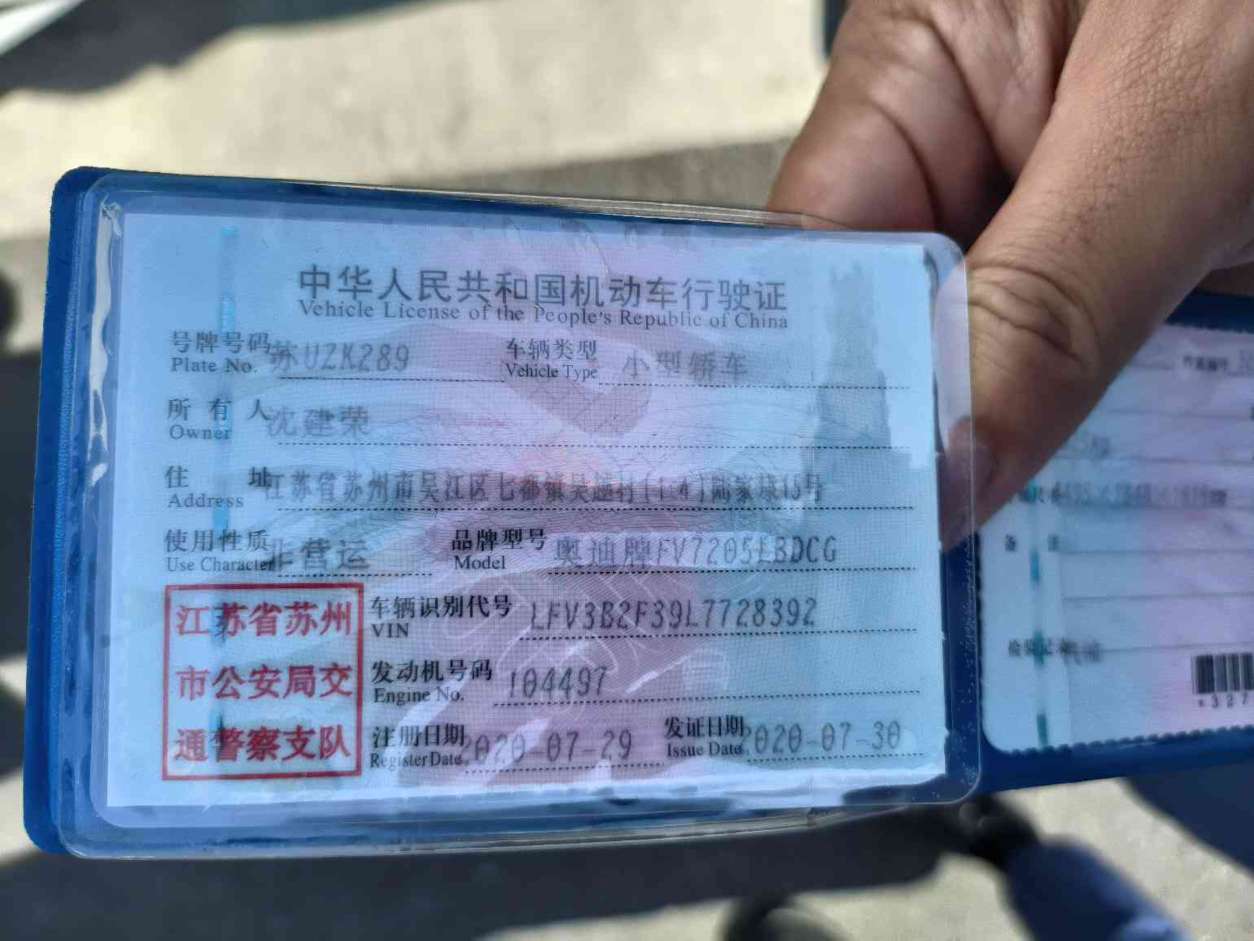 中华人民共和国机动车行驶证
Vehicle License of the People's Republic of China
号牌号码 苏UZK289 车辆类型 小型轿车
Plate No. Vehicle Type
所有人 沈建荣
Owner
住址 江苏省苏州市吴江区七都镇吴越村(14)陆家埭15号
Address
使用性质 非营运 品牌型号 奥迪牌FV7205LBDCG
Use Character Model
江苏省苏州
市公安局交
通警察支队
车辆识别代号 LFV3B2F39L7728392
VIN
发动机号码 104497
Engine No.
注册日期 2020-07-29 发证日期 2020-07-30
Register Date Issue Date